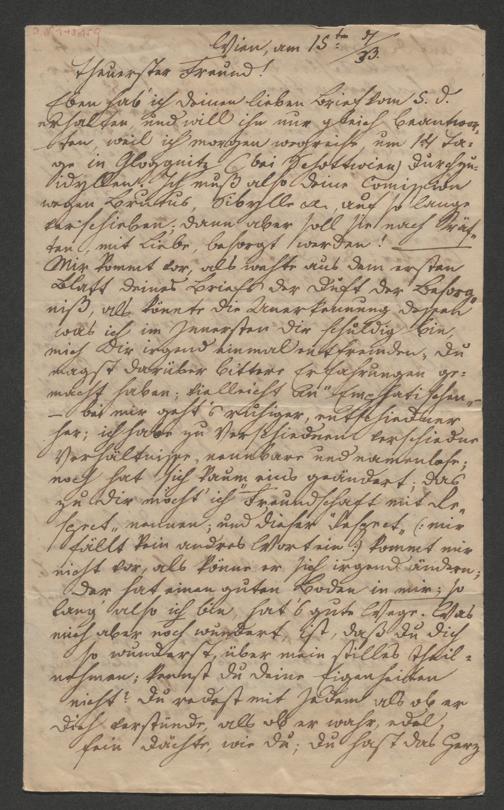 Wien, am 15ten 5/33.
Theuerster Freund!
Eben hab' ich deinen lieben Brief vom 5. d.
erhalten und will ihn nur gleich beantwor-
ten, weil ich morgen wegreise, um 14 Ta-
ge in Gloggnitz (bei Schottwien) durchzu-
idyllen. Ich muß also deine Comission
wegen Brutus, Sibylle &c. auf so lange
verschieben; dann aber soll sie nach Kräf-
ten, mit Liebe, besorgt werden! —
Mir kommt vor, als wehte aus dem ersten
Blatt deines Briefs der Duft der Besorg-
niß, als könnte die Anerkennung dessen
was ich im Innersten dir schuldig bin,
mich dir irgend einmal entfremden. Du
magst darüber bittere Erfahrungen ge-
macht haben; vielleicht an "Emphatischen"
— bei mir geht's ruhiger, entschiedner
her; ich habe zu Verschiednen verschiedne
Verhältnisse, nennbare und namenlose;
noch hat sich kaum eins geändert; das
zu dir möcht' ich "Freundschaft mit Re-
spect" nennen; und dieser Respect (: mir
fällt kein andres Wort ein :) kommt mir
nicht vor, als könne er sich irgend ändern;
der hat einen guten Boden in mir; so
lang also ich bin, hat's gute Wege. Was
mich aber noch wundert, ist, daß du dich
so wunderst, über mein stilles Theil-
nehmen; kennst du deine Eigenheiten
nicht? Du redest mit Jedem als ob er
dich verstünde, als ob er wahr, edel,
fein dächte, wie du; du hast das Herz